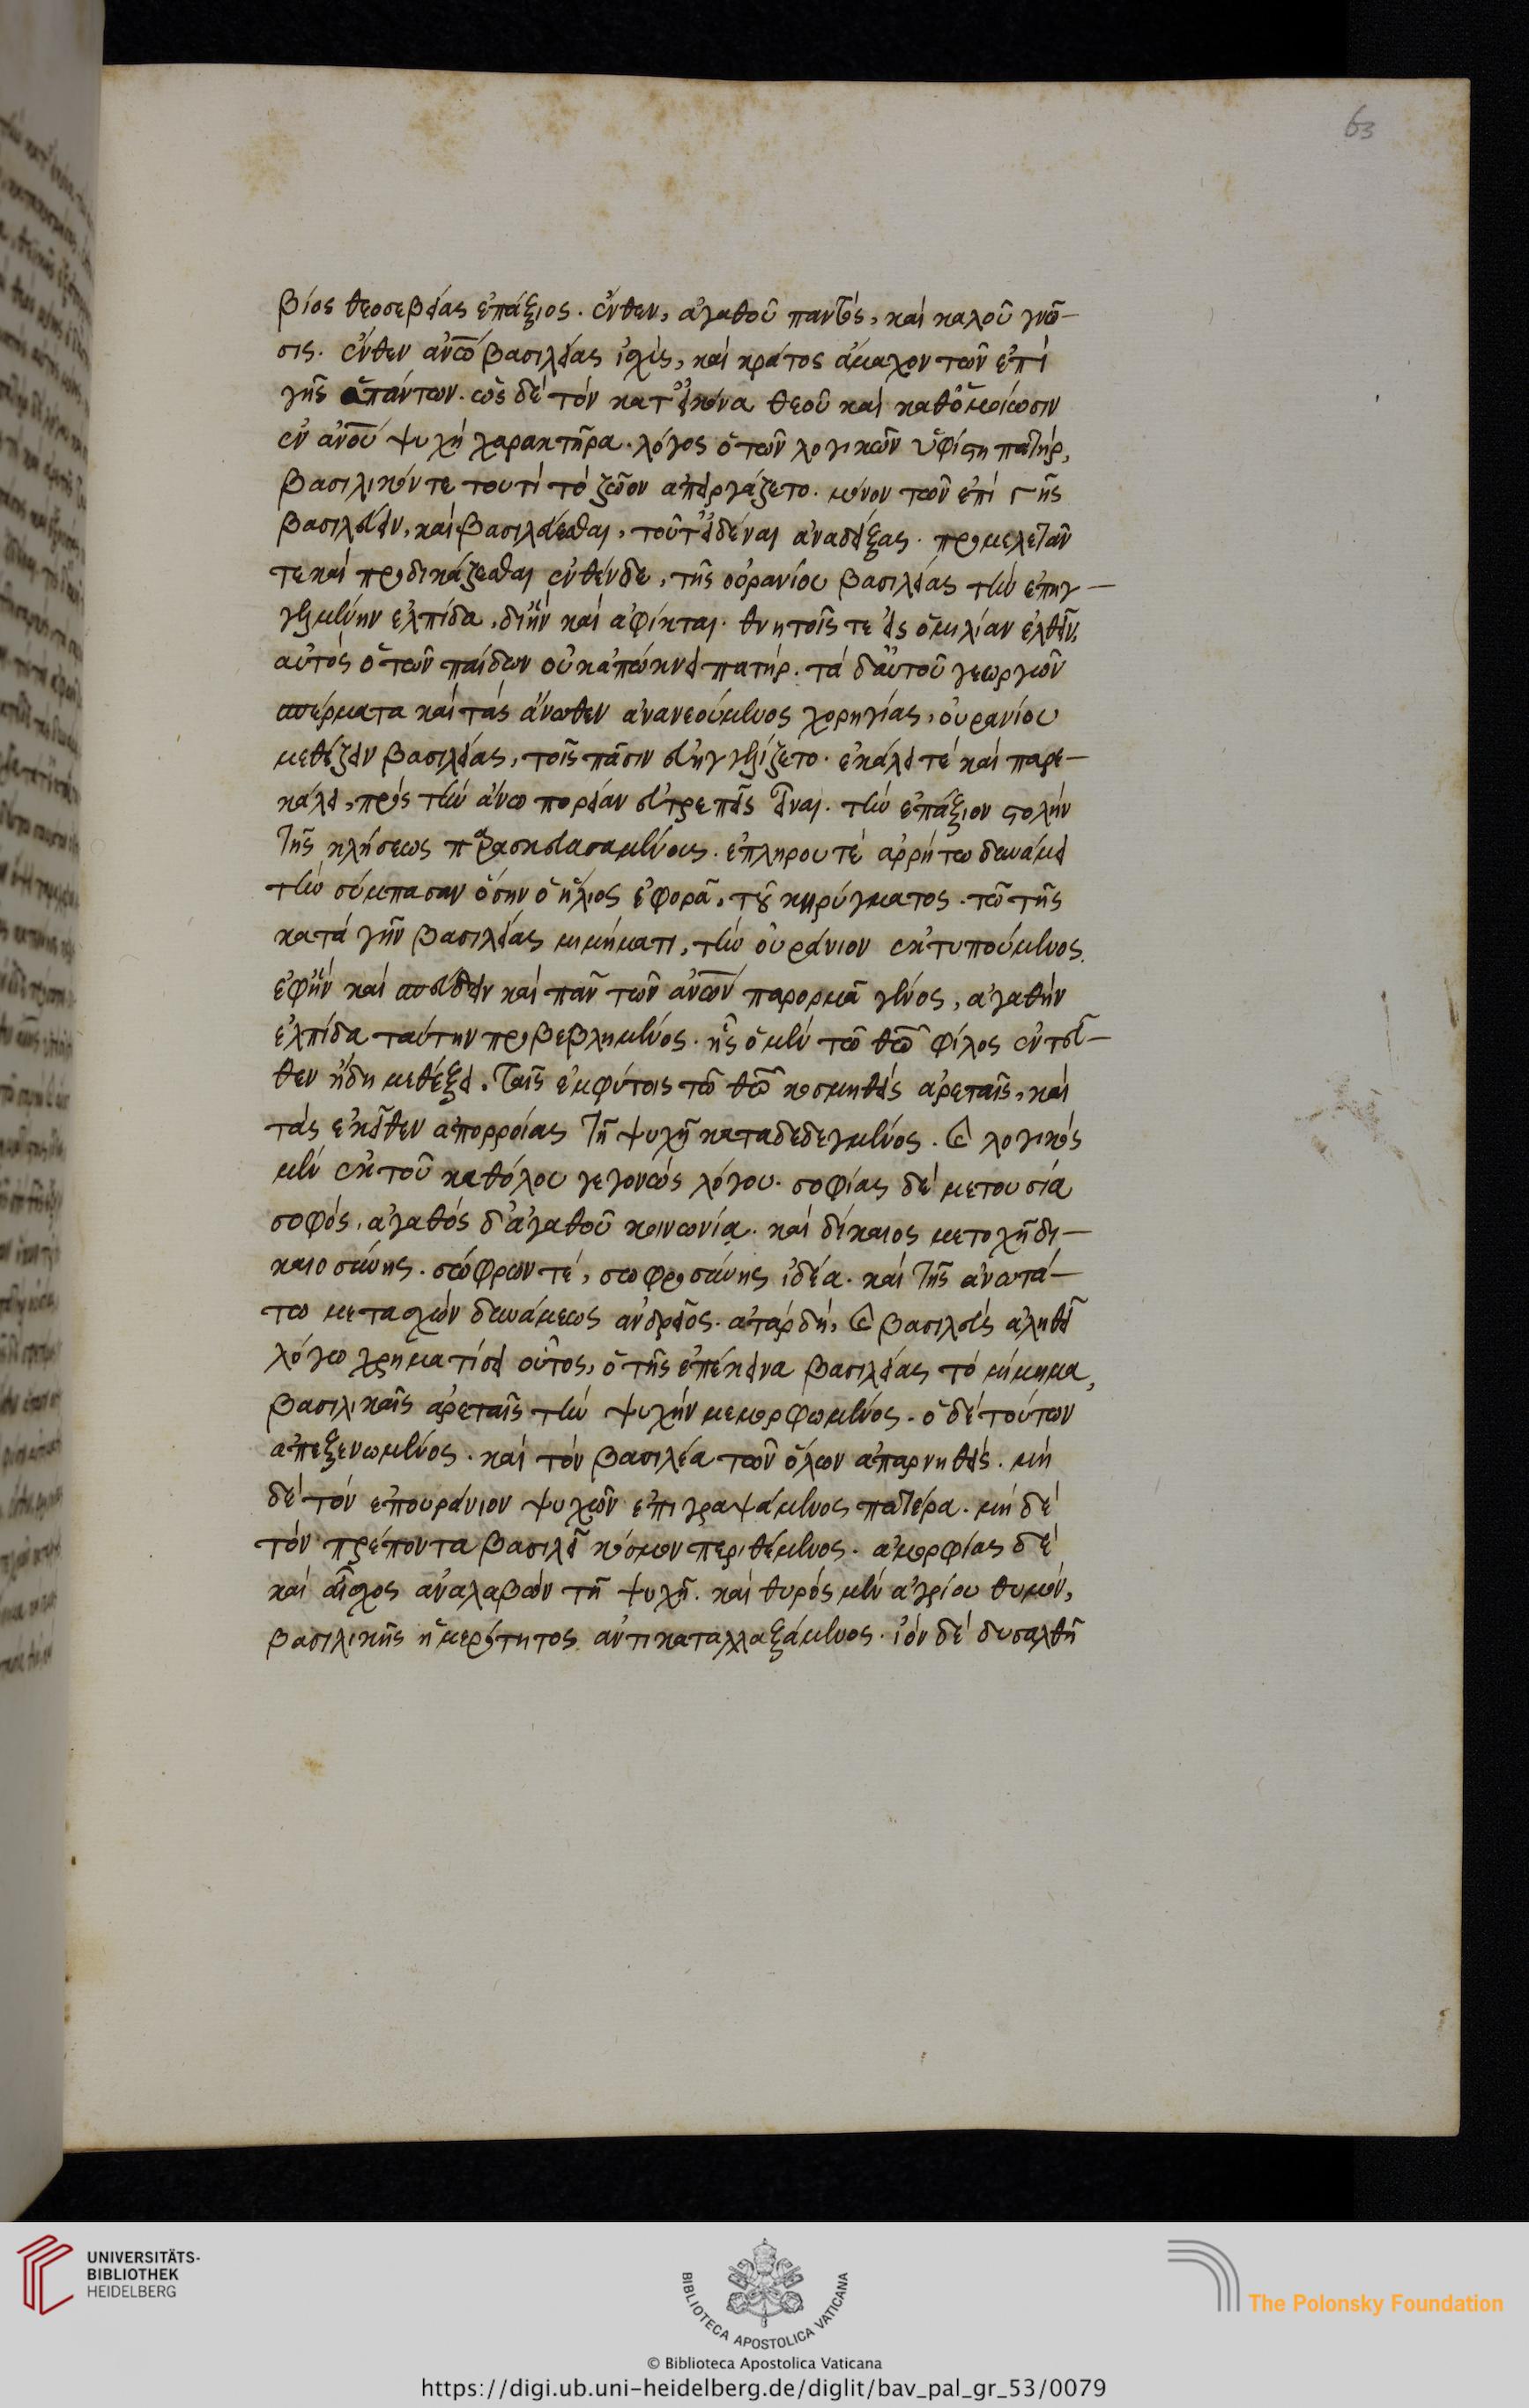 63
βίος θεοσεβείας ἐπάξιος. ἔνθεν, ἀγαθοῦ παντός, καὶ καλοῦ γνῶ-
σις. ἔνθεν ἀνῶ βασιλείας ἰσχὺς, καὶ κράτος ἄμαχον τῶν ἐπὶ
γῆς ἁπάντων. ὡς δὲ τὸν κατ' εἰκόνα θεοῦ καὶ καθ' ὁμοίωσιν
ἐν ἀνοῦ ψυχῇ χαρακτῆρα. λόγος ὁ τῶν λογικῶν ὑφίστη πατὴρ,
βασιλικόν τε τουτὶ τὸ ζῶον ἀπειργάζετο. μόνον τῶν ἐπὶ γῆς
βασιλεύειν, καὶ βασιλεύεσθαι, τοῦτ' εἰδέναι ἀναδείξας. προμελετᾶν
τε καὶ προδικάζεσθαι ἐνθένδε, τῆς οὐρανίου βασιλείας τὴν ἐπηγ-
γελμένην ἐλπίδα, δι' ἣν καὶ ἀφίκται. θνητοῖς τε εἰς ὁμιλίαν ἐλθεῖν,
αὐτὸς ὁ τῶν παίδων οὐκ ἀπώκνει πατήρ. τὰ δ' αὐτοῦ γεωργῶν
σπέρματα καὶ τὰς ἄνωθεν ἀνανεούμενος χορηγίας, οὐρανίου
μεθέξειν βασιλείας, τοῖς πᾶσιν εὐηγγελίζετο. ἐκάλει τὲ καὶ παρε-
κάλει, πρὸς τὴν ἄνω πορείαν εὐτρεπεῖς εἶναι. τὴν ἐπάξιον στολὴν
τῆς κλήσεως παρασκευασαμένους. ἐπλήρου τὲ ἀρρήτω δυνάμει
τὴν σύμπασαν ὅσην ὁ ἥλιος ἐφορᾶ, τοῦ κηρύγματος. τῶ τῆς
κατὰ γῆν βασιλείας μιμήματι, τὴν οὐράνιον ἐκτυπούμενος.
ἐφ' ἣν καὶ σπεύδειν καὶ πᾶν τῶν ἀνῶν παρορμᾶ γένος, ἀγαθὴν
ἐλπίδα ταύτην προβεβλημένος. ἧς ὁ μὲν τῶ θῶ φίλος ἐντεῦ-
θεν ἤδη μεθέξει. ταῖς ἐμφύτοις τῶ θῶ κοσμηθεὶς ἀρεταῖς, καὶ
τὰς ἐκεῖθεν ἀπορροίας τῆ ψυχῆ καταδεδεγμένος. καὶ λογικὸς
μὲν ἐκ τοῦ καθόλου γεγονὼς λόγου. σοφίας δὲ μετουσία
σοφὸς, ἀγαθὸς δ' ἀγαθοῦ κοινωνία. καὶ δίκαιος μετοχῆ δι-
καιοσύνης. σώφρων τὲ, σωφροσύνης ἰδέα. καὶ τῆς ἀνωτά-
τω μετασχὼν δυνάμεως ἀνδρεῖος. ἀτὰρ δὴ, καὶ βασιλεὺς ἀληθεῖ
λόγω χρηματίσει οὗτος, ὁ τῆς ἐπέκεινα βασιλείας τὸ μίμημα,
βασιλικαῖς ἀρεταῖς τὴν ψυχὴν μεμορφωμένος. ὁ δὲ τούτων
ἀπεξενωμένος. καὶ τὸν βασιλέα τῶν ὅλων ἀπαρνηθεὶς. μὴ
δὲ τὸν ἐπουράνιον ψυχῶν ἐπιγραψάμενος πατέρα. μὴ δὲ
τὸν πρέποντα βασιλεῖ κόσμον περιθέμενος. ἀμορφίας δὲ
καὶ αἶσχος ἀναλαβὼν τῆ ψυχῆ. καὶ θυρὸς μὲν ἀγρίου θυμὸν,
βασιλικῆς ἡμερότητος ἀντικαταλλαξάμενος. ἰὸν δὲ δυσαλθῆ
UNIVERSITÄTS-
BIBLIOTHEK
HEIDELBERG
BIBLIOTECA APOSTOLICA VATICANA
The Polonsky Foundation
© Biblioteca Apostolica Vaticana
https://digi.ub.uni-heidelberg.de/diglit/bav_pal_gr_53/0079